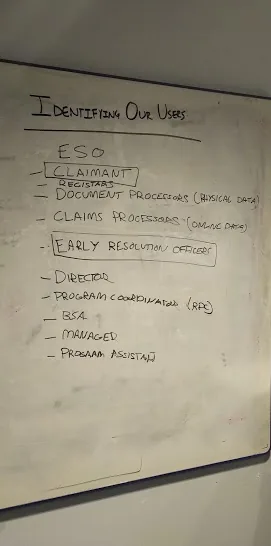 IDENTIFYING OUR USERS
ESO
- CLAIMANT
REGISTARS
- DOCUMENT PROCESSORS (PHYSICAL DATA)
- CLAIMS PROCESSORS (ONLINE DATA)
- EARLY RESOLUTION OFFICERS
- DIRECTOR
- PROGRAM COORDINATORS
- BSA
- MANAGED
- PROGAAM ASSISTAN